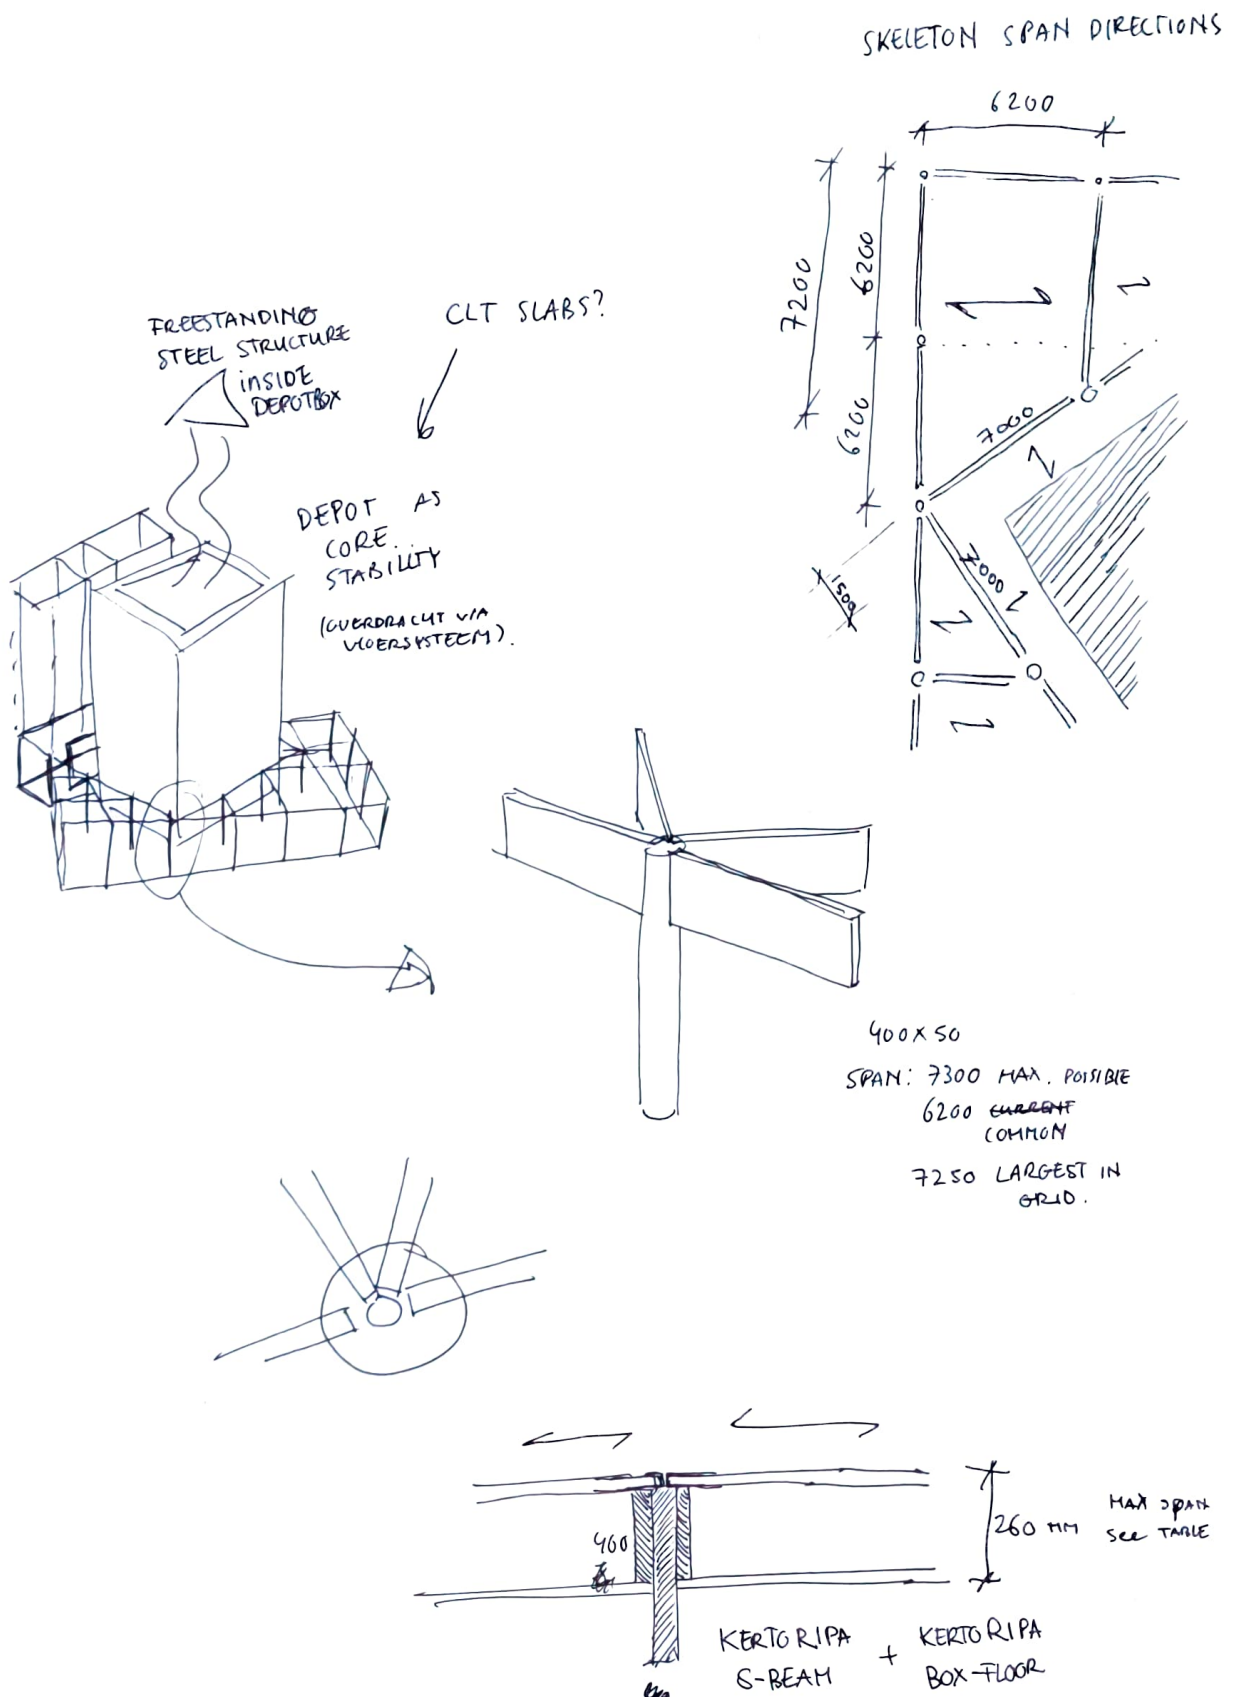 SKELETON SPAN DIRECTIONS
6200
7200
6200
6200
7000
7000
1500
FREESTANDING
STEEL STRUCTURE
INSIDE
DEPOTBOX
CLT SLABS?
DEPOT AS
CORE.
STABILITY
(OVERDRACHT VIA
VLOERSYSTEEM).
400X50
SPAN: 7300 MAX. POSSIBLE
6200 CURRENT
COMMON
7250 LARGEST IN
GRID.
400
260 MM
MAX SPAN
See TABLE
KERTO RIPA
S-BEAM
+
KERTO RIPA
BOX-FLOOR